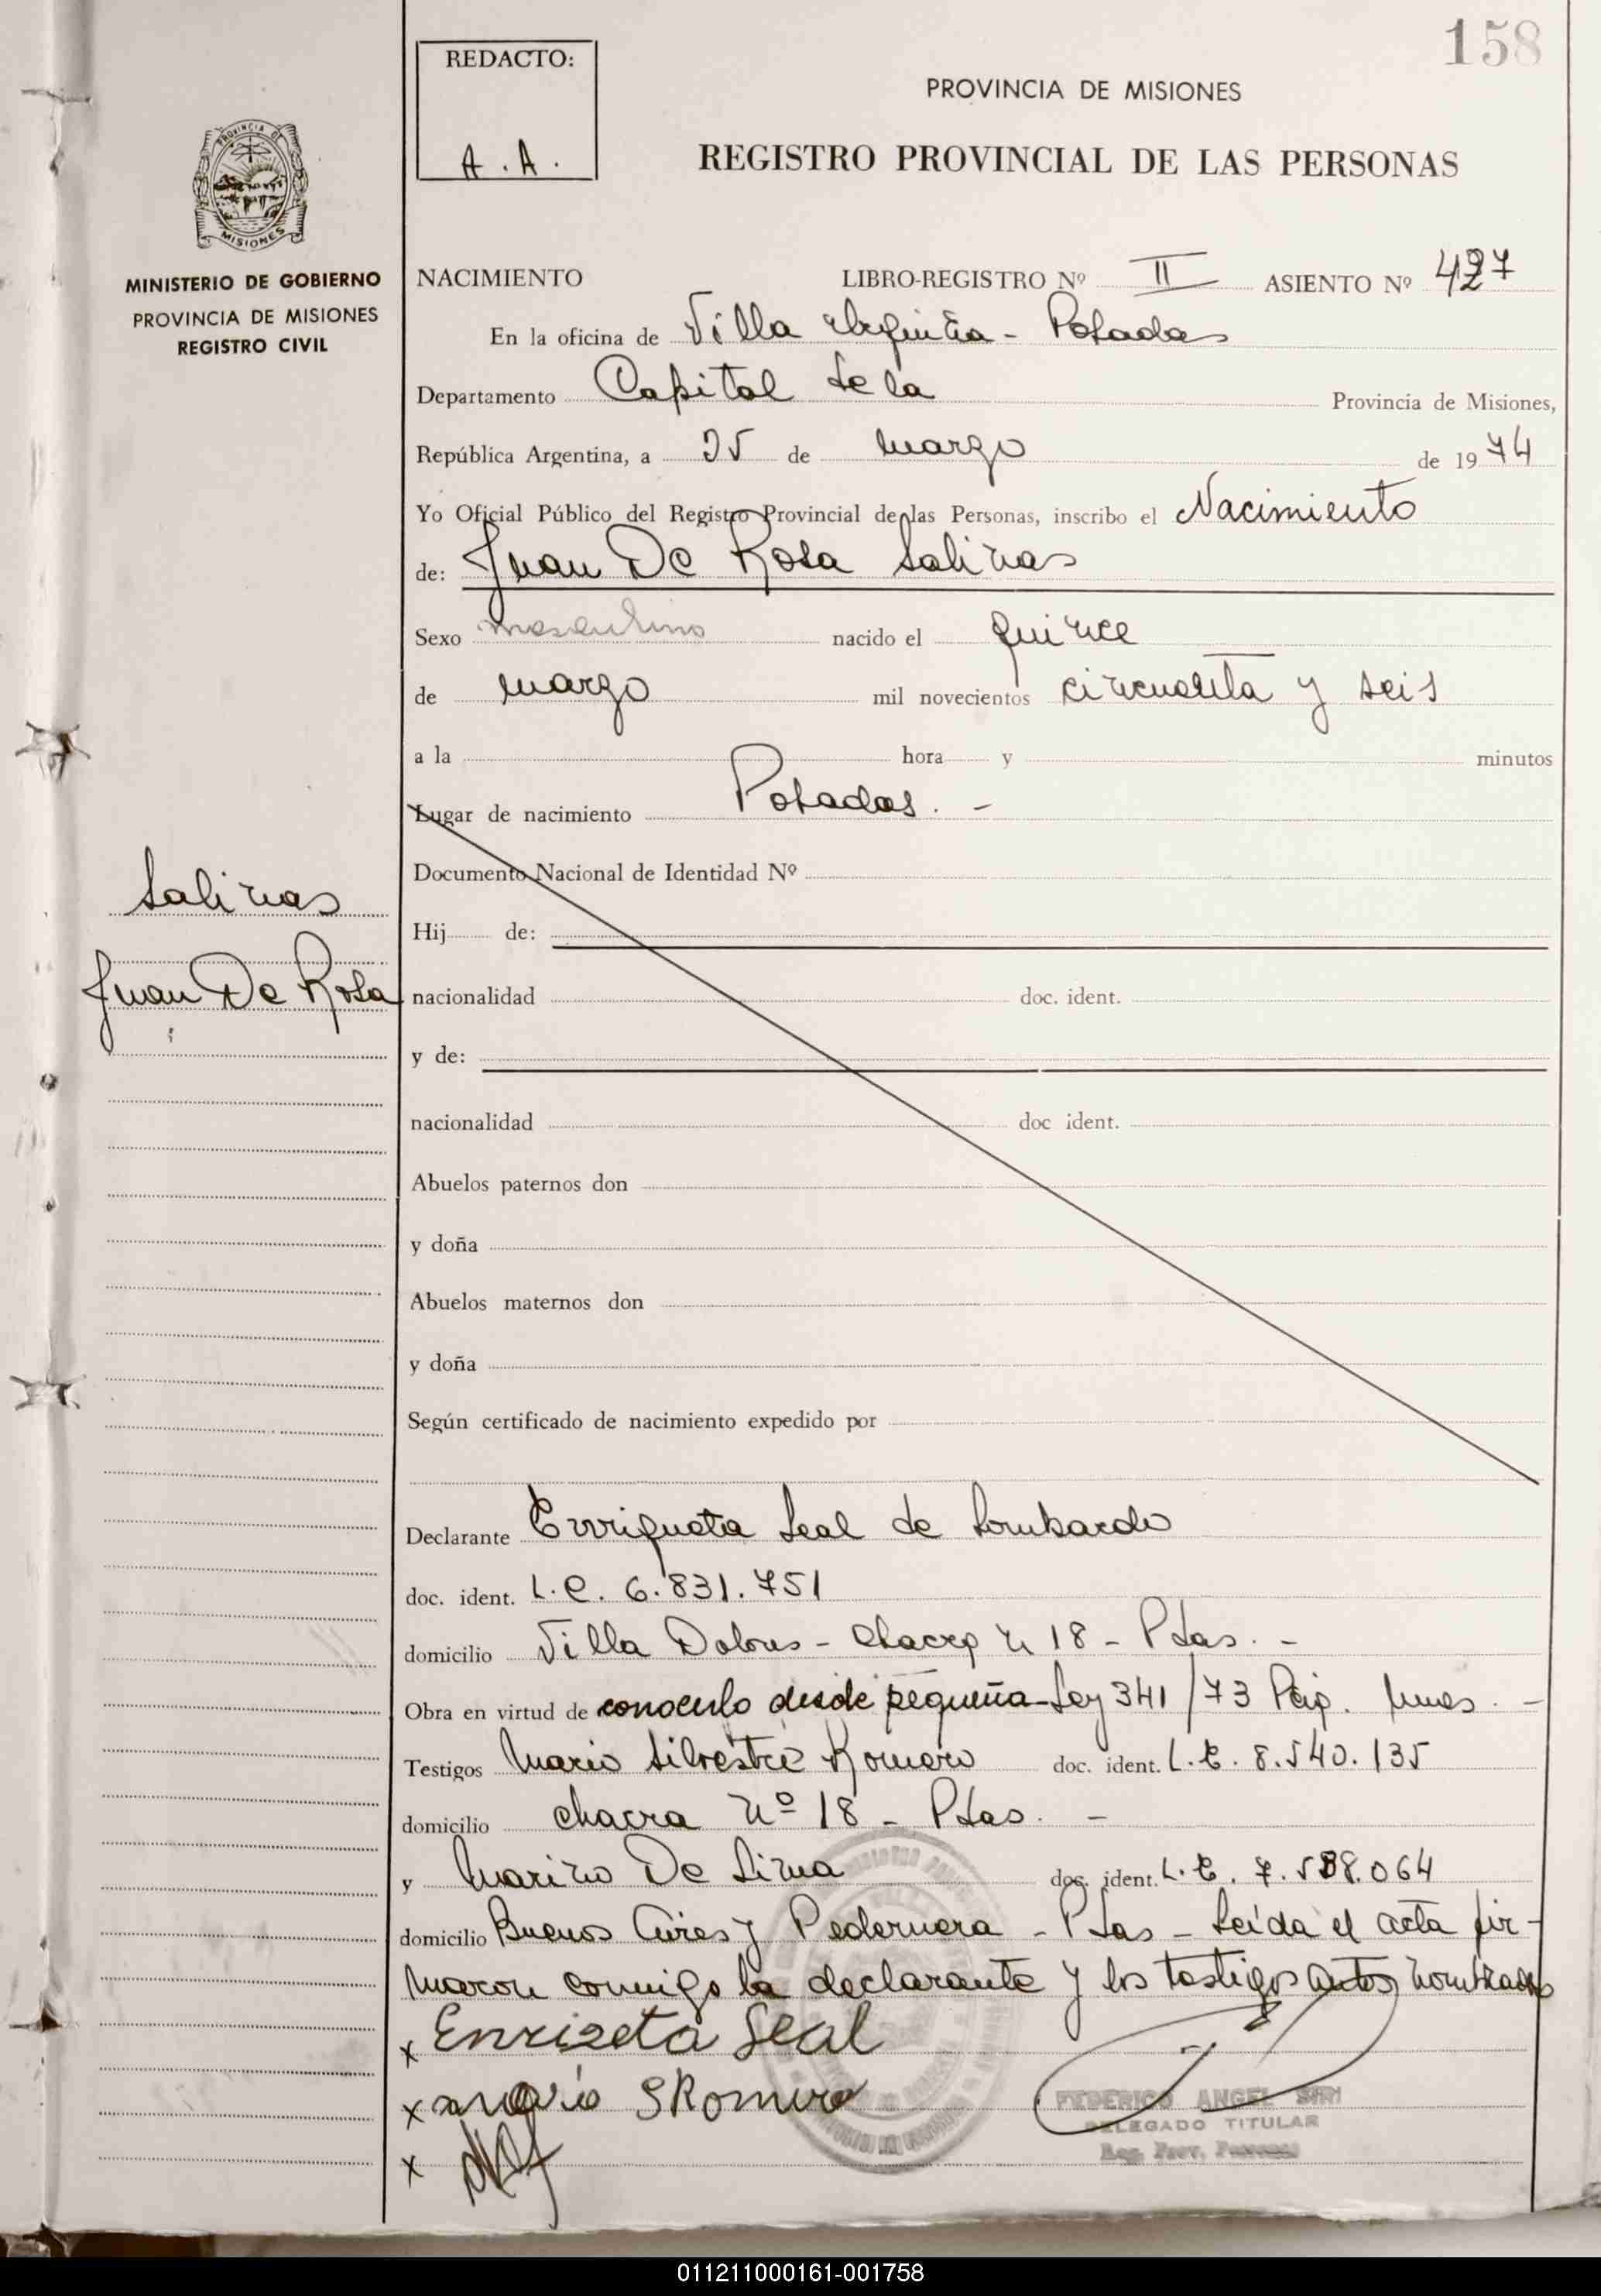 158
REDACTO:
A.A.
PROVINCIA DE MISIONES
REGISTRO PROVINCIAL DE LAS PERSONAS
PROVINCIA DE
MISIONES
MINISTERIO DE GOBIERNO
PROVINCIA DE MISIONES
REGISTRO CIVIL
NACIMIENTO LIBRO-REGISTRO Nº II ASIENTO Nº 427
En la oficina de Villa Urquiza - Posadas
Departamento Capital de la Provincia de Misiones,
República Argentina, a 25 de marzo de 1974
Yo Oficial Público del Registro Provincial de las Personas, inscribo el Nacimiento
de: Juan De Rosa Salinas
Sexo masculino nacido el quince
de marzo mil novecientos cincuenta y seis
a la hora y minutos
Lugar de nacimiento Posadas. -
Documento Nacional de Identidad Nº
Salinas
Juan De Rosa
Hij de:
nacionalidad doc. ident.
y de:
nacionalidad doc ident.
Abuelos paternos don
y doña
Abuelos maternos don
y doña
Según certificado de nacimiento expedido por
Declarante Enriqueta Leal de Lombardo
doc. ident. L.C. 6.831.751
domicilio Villa Dolores - Chacra n 18 - Pdas. -
Obra en virtud de conocerlo desde pequeña - Ley 341/73 -
Testigos Mario Silvestre Romero doc. ident. L.E. 8.540.135
domicilio chacra nº 18 - Pdas. -
y Marino De Lima doc. ident. L.E. 7.588.064
domicilio Buenos Aires y Pedernera - Pdas - Leída el acta fir-
maron conmigo la declarante y los testigos antes nombrados
x Enriqeta Leal
x Mario S Romero
x
FEDERICO ANGEL
DELEGADO TITULAR
Reg. Prov. Personas
011211000161-001758